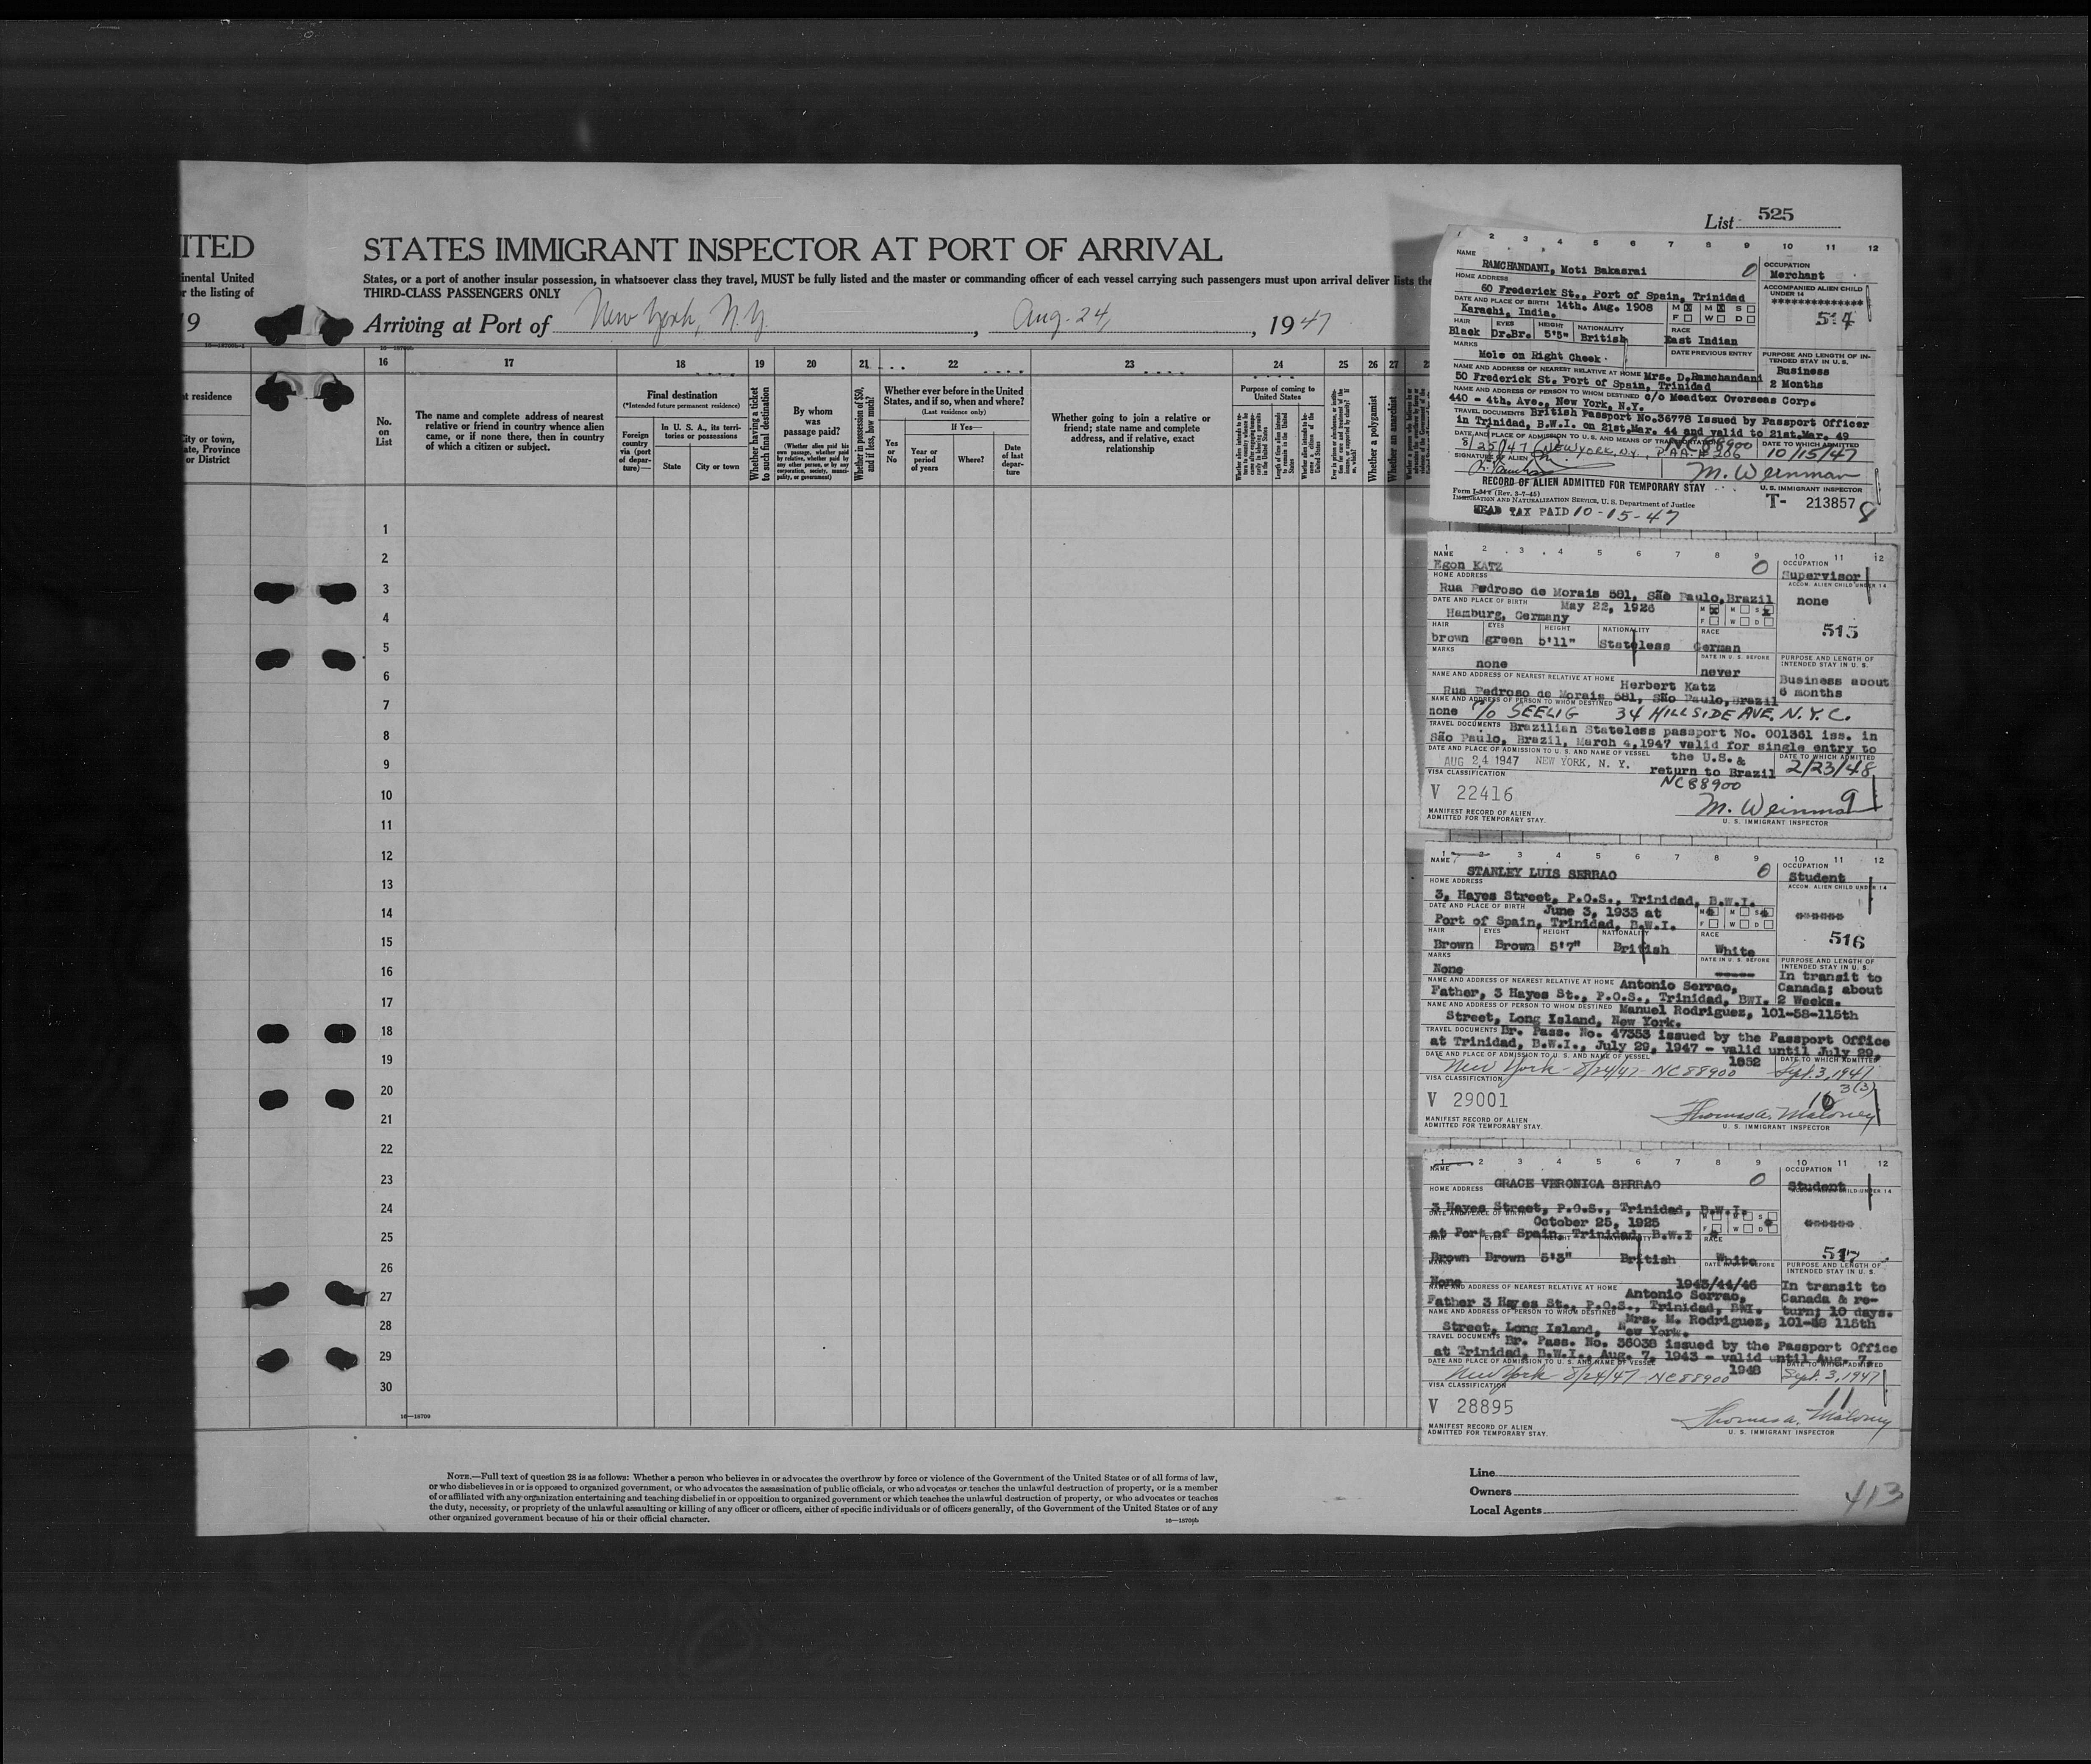 List 525
ITED
STATES IMMIGRANT INSPECTOR AT PORT OF ARRIVAL
inental United
r the listing of
States, or a port of another insular possession, in whatsoever class they travel, MUST be fully listed and the master or commanding officer of each vessel carrying such passengers must upon arrival deliver lists the
THIRD-CLASS PASSENGERS ONLY
9
Arriving at Port of New York, N.Y., Aug. 24, 1947
16 17 18 19 20 21 22 23 24 25 26 27
t residence
City or town,
ate, Province
or District
No.
on
List
The name and complete address of nearest
relative or friend in country whence alien
came, or if none there, then in country
of which a citizen or subject.
Final destination
(*Intended future permanent residence)
Foreign
country
via (port
of depar-
ture)—
In U. S. A., its terri-
tories or possessions
State
City or town
Whether having a ticket
to such final destination
By whom
was
passage paid?
(Whether alien paid his
own passage, whether paid
by relative, whether paid by
any other person, or by any
corporation, society, munici-
pality, or government)
Whether in possession of $50,
and if less, how much?
Whether ever before in the United
States, and if so, when and where?
(Last residence only)
Yes
or
No
If Yes—
Year or
period
of years
Where?
Date
of last
depar-
ture
Whether going to join a relative or
friend; state name and complete
address, and if relative, exact
relationship
Purpose of coming to
United States
Whether a polygamist
Whether an anarchist
1
2
3
4
5
6
7
8
9
10
11
12
13
14
15
16
17
18
19
20
21
22
23
24
25
26
27
28
29
30
16—18709
NOTE.—Full text of question 28 is as follows: Whether a person who believes in or advocates the overthrow by force or violence of the Government of the United States or of all forms of law,
or who disbelieves in or is opposed to organized government, or who advocates the assassination of public officials, or who advocates or teaches the unlawful destruction of property, or is a member
of or affiliated with any organization entertaining and teaching disbelief in or opposition to organized government or which teaches the unlawful destruction of property, or who advocates or teaches
the duty, necessity, or propriety of the unlawful assaulting or killing of any officer or officers, either of specific individuals or of officers generally, of the Government of the United States or of any
other organized government because of his or their official character.
16—18709b
1 2 3 4 5 6 7 8 9 10 11 12
NAME
RAMCHANDANI, Moti Bakasrai 0
OCCUPATION
Merchant
HOME ADDRESS
60 Frederick St., Port of Spain, Trinidad
ACCOMPANIED ALIEN CHILD
UNDER 14
**************
DATE AND PLACE OF BIRTH 14th. Aug. 1908
Karachi, India.
M X M X S
F W D
514
HAIR EYES HEIGHT NATIONALITY RACE
Black Dr.Br. 5'5" British East Indian
MARKS
Mole on Right Cheek
DATE PREVIOUS ENTRY
PURPOSE AND LENGTH OF IN-
TENDED STAY IN U. S.
Business
2 Months
NAME AND ADDRESS OF NEAREST RELATIVE AT HOME Mrs. D.Ramchandani
50 Frederick St. Port of Spain, Trinidad
NAME AND ADDRESS OF PERSON TO WHOM DESTINED c/o Meadtex Overseas Corp.
440 - 4th. Ave., New York, N.Y.
TRAVEL DOCUMENTS British Passport No.36778 Issued by Passport Officer
in Trinidad, B.W.I. on 21st.Mar. 44 and valid to 21st.Mar. 49
DATE AND PLACE OF ADMISSION TO U. S. AND MEANS OF TRANSPORTATION NC 88900 DATE TO WHICH ADMITTED
8/25/47 NEW YORK, N.Y., PAA. # 206 10/15/47
SIGNATURE OF ALIEN
M. Weinman
RECORD OF ALIEN ADMITTED FOR TEMPORARY STAY
U. S. IMMIGRANT INSPECTOR
Form I-94 (Rev. 3-7-45)
IMMIGRATION AND NATURALIZATION SERVICE, U. S. Department of Justice
T- 213857 8
HEAD TAX PAID 10-15-47
1 2 3 4 5 6 7 8 9 10 11 12
NAME
Egon KATZ 0
OCCUPATION
Supervisor
HOME ADDRESS
Rua Pedroso de Morais 581, São Paulo,Brazil
ACCOM. ALIEN CHILD UNDER 14
none
DATE AND PLACE OF BIRTH May 22, 1926
Hamburg, Germany
M X M S X
F W D
515
HAIR EYES HEIGHT NATIONALITY RACE
brown green 5'11" Stateless German
MARKS
none
DATE IN U. S. BEFORE
never
PURPOSE AND LENGTH OF
INTENDED STAY IN U. S.
Business about
6 months
NAME AND ADDRESS OF NEAREST RELATIVE AT HOME Herbert Katz
Rua Pedroso de Morais 581, São Paulo,Brazil
NAME AND ADDRESS OF PERSON TO WHOM DESTINED
none c/o SEELIG 34 HILLSIDE AVE. N.Y.C.
TRAVEL DOCUMENTS Brazilian Stateless passport No. 001361 iss. in
São Paulo, Brazil, March 4,1947 valid for single entry to
DATE AND PLACE OF ADMISSION TO U. S. AND NAME OF VESSEL the U.S. & DATE TO WHICH ADMITTED
AUG 24 1947 NEW YORK, N. Y. return to Brazil 2/23/48
VISA CLASSIFICATION
NC88900
V 22416
M. Weinman 9
MANIFEST RECORD OF ALIEN
ADMITTED FOR TEMPORARY STAY.
U. S. IMMIGRANT INSPECTOR
1 2 3 4 5 6 7 8 9 10 11 12
NAME
STANLEY LUIS SERRAO 0
OCCUPATION
Student
HOME ADDRESS
3, Hayes Street, P.O.S., Trinidad, B.W.I.
ACCOM. ALIEN CHILD UNDER 14
DATE AND PLACE OF BIRTH June 3, 1933 at
Port of Spain, Trinidad, B.W.I.
M M S
F W D
516
HAIR EYES HEIGHT NATIONALITY RACE
Brown Brown 5'7" British White
MARKS
None
DATE IN U. S. BEFORE
-----
PURPOSE AND LENGTH OF
INTENDED STAY IN U. S.
In transit to
Canada; about
2 Weeks.
NAME AND ADDRESS OF NEAREST RELATIVE AT HOME Antonio Serrao,
Father, 3 Hayes St., P.O.S., Trinidad, BWI.
NAME AND ADDRESS OF PERSON TO WHOM DESTINED Manuel Rodriguez, 101-58-115th
Street, Long Island, New York.
TRAVEL DOCUMENTS Br. Pass. No. 47353 issued by the Passport Office
at Trinidad, B.W.I., July 29, 1947 - valid until July 29,
1952
DATE AND PLACE OF ADMISSION TO U. S. AND NAME OF VESSEL DATE TO WHICH ADMITTED
New York - 8/24/47 - NC88900 Sept. 3, 1947
VISA CLASSIFICATION
3(3)
V 29001
10
Thomas A. Maloney
MANIFEST RECORD OF ALIEN
ADMITTED FOR TEMPORARY STAY.
U. S. IMMIGRANT INSPECTOR
1 2 3 4 5 6 7 8 9 10 11 12
NAME
GRACE VERONICA SERRAO 0
OCCUPATION
Student
HOME ADDRESS
3 Hayes Street, P.O.S., Trinidad, B.W.I.
DATE AND PLACE OF BIRTH
October 25, 1925
at Port of Spain, Trinidad, B.W.I
M M S
F W D
517
Brown Brown 5'3" British White
MARKS
None
DATE IN U. S. BEFORE
1943/44/46
PURPOSE AND LENGTH OF
INTENDED STAY IN U. S.
In transit to
Canada & re-
turn; 10 days.
NAME AND ADDRESS OF NEAREST RELATIVE AT HOME Antonio Serrao,
Father 3 Hayes St., P.O.S., Trinidad, BWI.
NAME AND ADDRESS OF PERSON TO WHOM DESTINED Mrs. M. Rodriguez, 101-58 115th
Street, Long Island, New York.
TRAVEL DOCUMENTS Br. Pass. No. 36038 issued by the Passport Office
at Trinidad, B.W.I., Aug. 7, 1943 - valid until Aug. 7,
1948
DATE AND PLACE OF ADMISSION TO U. S. AND NAME OF VESSEL DATE TO WHICH ADMITTED
New York - 8/24/47 - NC88900 Sept. 3, 1947
VISA CLASSIFICATION
11
V 28895
Thomas A. Maloney
MANIFEST RECORD OF ALIEN
ADMITTED FOR TEMPORARY STAY.
U. S. IMMIGRANT INSPECTOR
Line
Owners
Local Agents
413